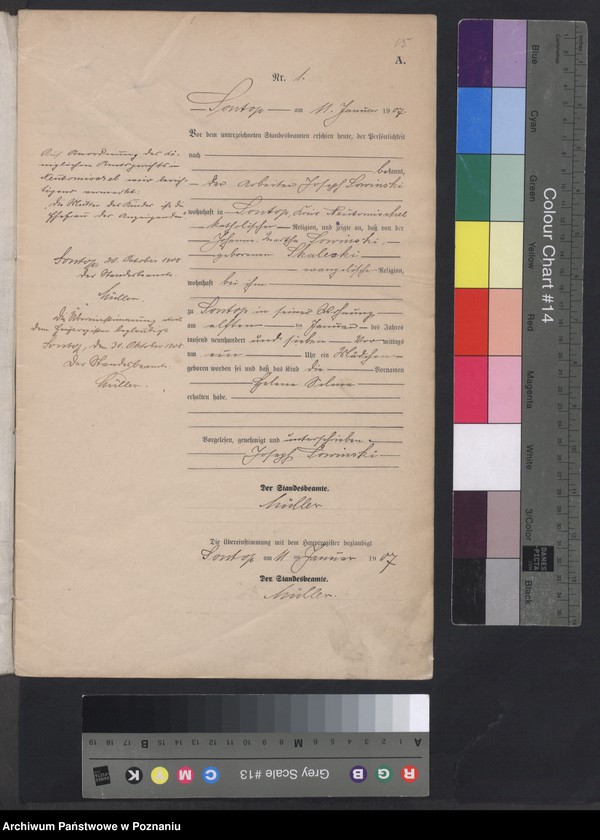 15
A.
Nr. 1.
Sontop am 11. Januar 1907
Vor dem unterzeichneten Standesbeamten erschien heute, der Persönlichkeit
nach
bekannt,
der Arbeiter Joseph Lowinski
wohnhaft in Sontop, Kreis Neutomischel
katholischer Religion, und zeigte an, daß von der
Johanna Martha Lowinski,
geborenen Skaleski
evangelische Religion,
wohnhaft bei ihm
zu Sontop in seiner Wohnung
am elften Januar des Jahres
tausend neunhundert und sieben Vormittags
um Uhr ein Mädchen
geboren worden sei und daß das Kind die Vornamen
Helene Selma
erhalten habe.
Vorgelesen, genehmigt und unterschrieben
Joseph Lowinski
Der Standesbeamte.
Müller
Die Übereinstimmung mit dem Hauptregister beglaubigt
Sontop am 11. Januar 1907
Der Standesbeamte.
Müller.
Auf Anordnung des Kö-
niglichen Amtsgerichts in
Neutomischel wird berich-
tigend vermerkt:
Die Mutter des Kindes ist die
Ehefrau des Anzeigenden
Sontop, 20. Oktober 1908
Der Standesbeamte.
Müller
Die Übereinstimmung mit
dem Hauptregister beglaubigt
Sontop, den 20. Oktober 1908.
Der Standesbeamte.
Müller.
Colour Chart #14
Blue
Cyan
Green
Yellow
Red
Magenta
White
3/Color
Black
DANES
PICTA
Grey Scale #13
R G B C M Y K
A 1 2 3 4 5 6 M 8 9 10 11 12 13 14 15 B 17 18 19
Archiwum Państwowe w Poznaniu